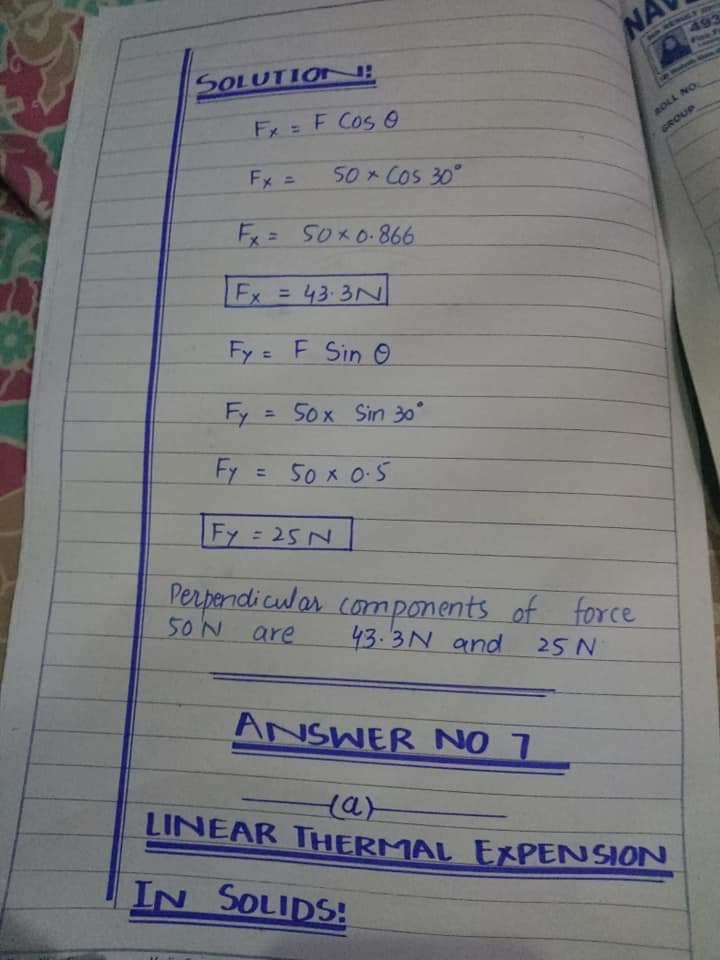 SOLUTION:
Fx = F Cos θ
Fx = 50 × Cos 30°
Fx = 50 × 0.866
Fx = 43.3N
Fy = F Sin θ
Fy = 50 × Sin 30°
Fy = 50 × 0.5
Fy = 25 N
Perpendicular components of force
50 N are 43.3N and 25 N
ANSWER NO 7
(a)
LINEAR THERMAL EXPENSION
IN SOLIDS:
ROLL NO
GROUP